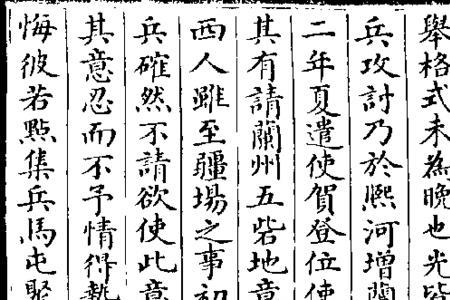 舉格式未為晚也光
兵攻討乃於熈河增蘭
二年夏遣使賀登位使
其有請蘭州五砦地意
西人雖至疆場之事初
兵確然不請欲使此意
其意忍而不予情得
悔彼若㸃集兵馬屯聚